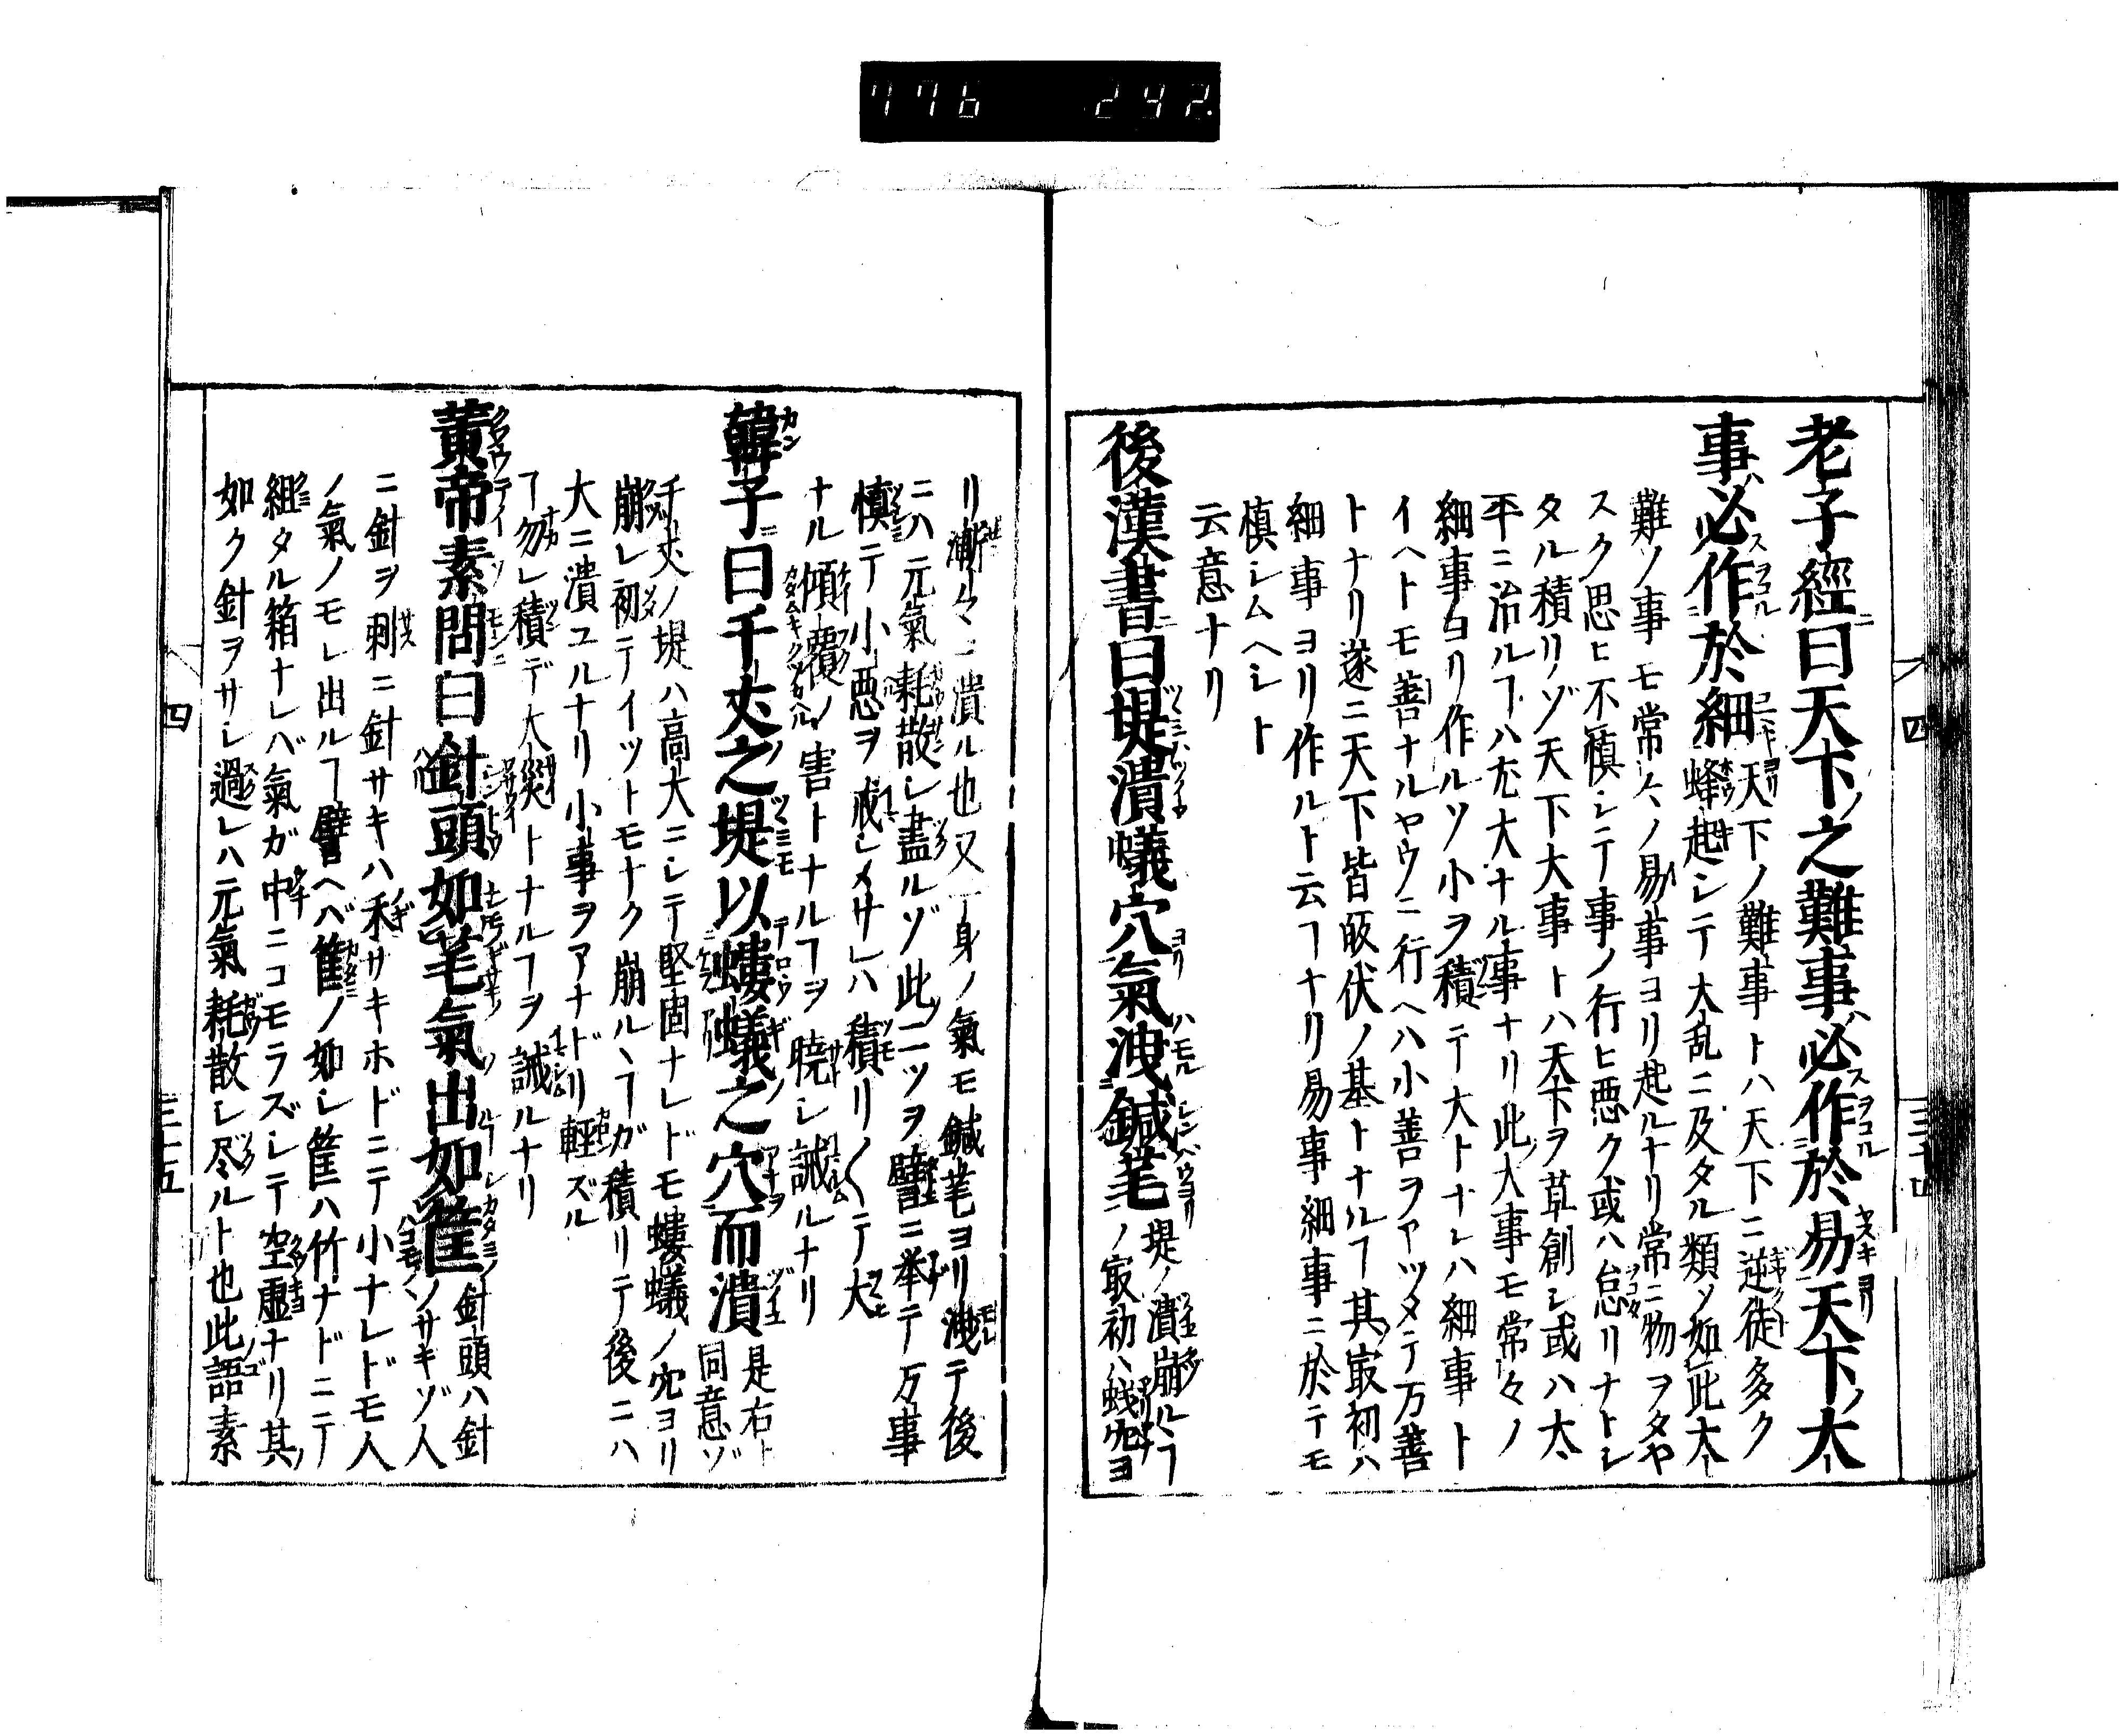 776 242.
老子經曰天下之難事必作於易天下大
事必作於細天下ノ難事トハ天下ニ逆徒多ク
蜂起シテ大乱ニ及タル類ソ如此大
難ソ事モ常々ノ易事ヨリ起ルナリ常ニ物ヲタヤ
スク思ヒ不慎シテ事ノ行ヒ悪ク或ハ怠リナトシ
タル積リゾ天下大事トハ天下ヲ草創シ或ハ太
平ニ治ルヿハ尤大ナル事ナリ此大事モ常々ノ
細事ヨリ作ルソ小ヲ積テ大トナレハ細事ト
イヘトモ善ナルヤウニ行ヘハ小善ヲアツメテ万善
トナリ遂ニ天下皆皈伏ノ基トナルヿ其㝡初ハ
細事ヨリ作ルト云フヿナリ易事細事ニ於テモ
慎シムヘシト
云意ナリ
後漢書曰堤潰蟻穴氣洩鍼芒堤ノ潰崩ルヽヿ
ノ㝡初ハ蟻穴ヨ
四
三十四
リ漸々ニ潰ル也又一身ノ氣モ鍼芒ヨリ洩テ後
ニハ元氣耗散シ盡ルゾ此二ツヲ譬ニ挙テ万事
慎テ小悪ヲ戒シメサレハ積リ〱テ大
ナル傾覆ノ害トナルヿヲ暁シ誡ルナリ
韓子曰千丈之堤以螻蟻之穴而潰是右ト
同意ゾ
千丈ノ堤ハ高大ニシテ堅固ナレドモ螻蟻ノ穴ヨリ
崩レ初テイツトモナク崩ルヽヿガ積リテ後ニハ
大ニ潰ユルナリ小事ヲアナドリ輕ズル
ヿ勿レ積デ大災トナルヿヲ誡ルナリ
黄帝素問曰針頭如芒氣出如筐針頭ハ針
ノサキゾ人
ニ針ヲ刺ニ針サキハ禾サキホドニテ小ナレドモ人
ノ氣ノモレ出ルヿ譬ヘバ筐ノ如シ筐ハ竹ナドニテ
組タル箱ナレバ氣ガ中ニコモラズシテ空虚ナリ其
如ク針ヲサシ過レハ元氣耗散シ尽ルト也此語素
四
三十五